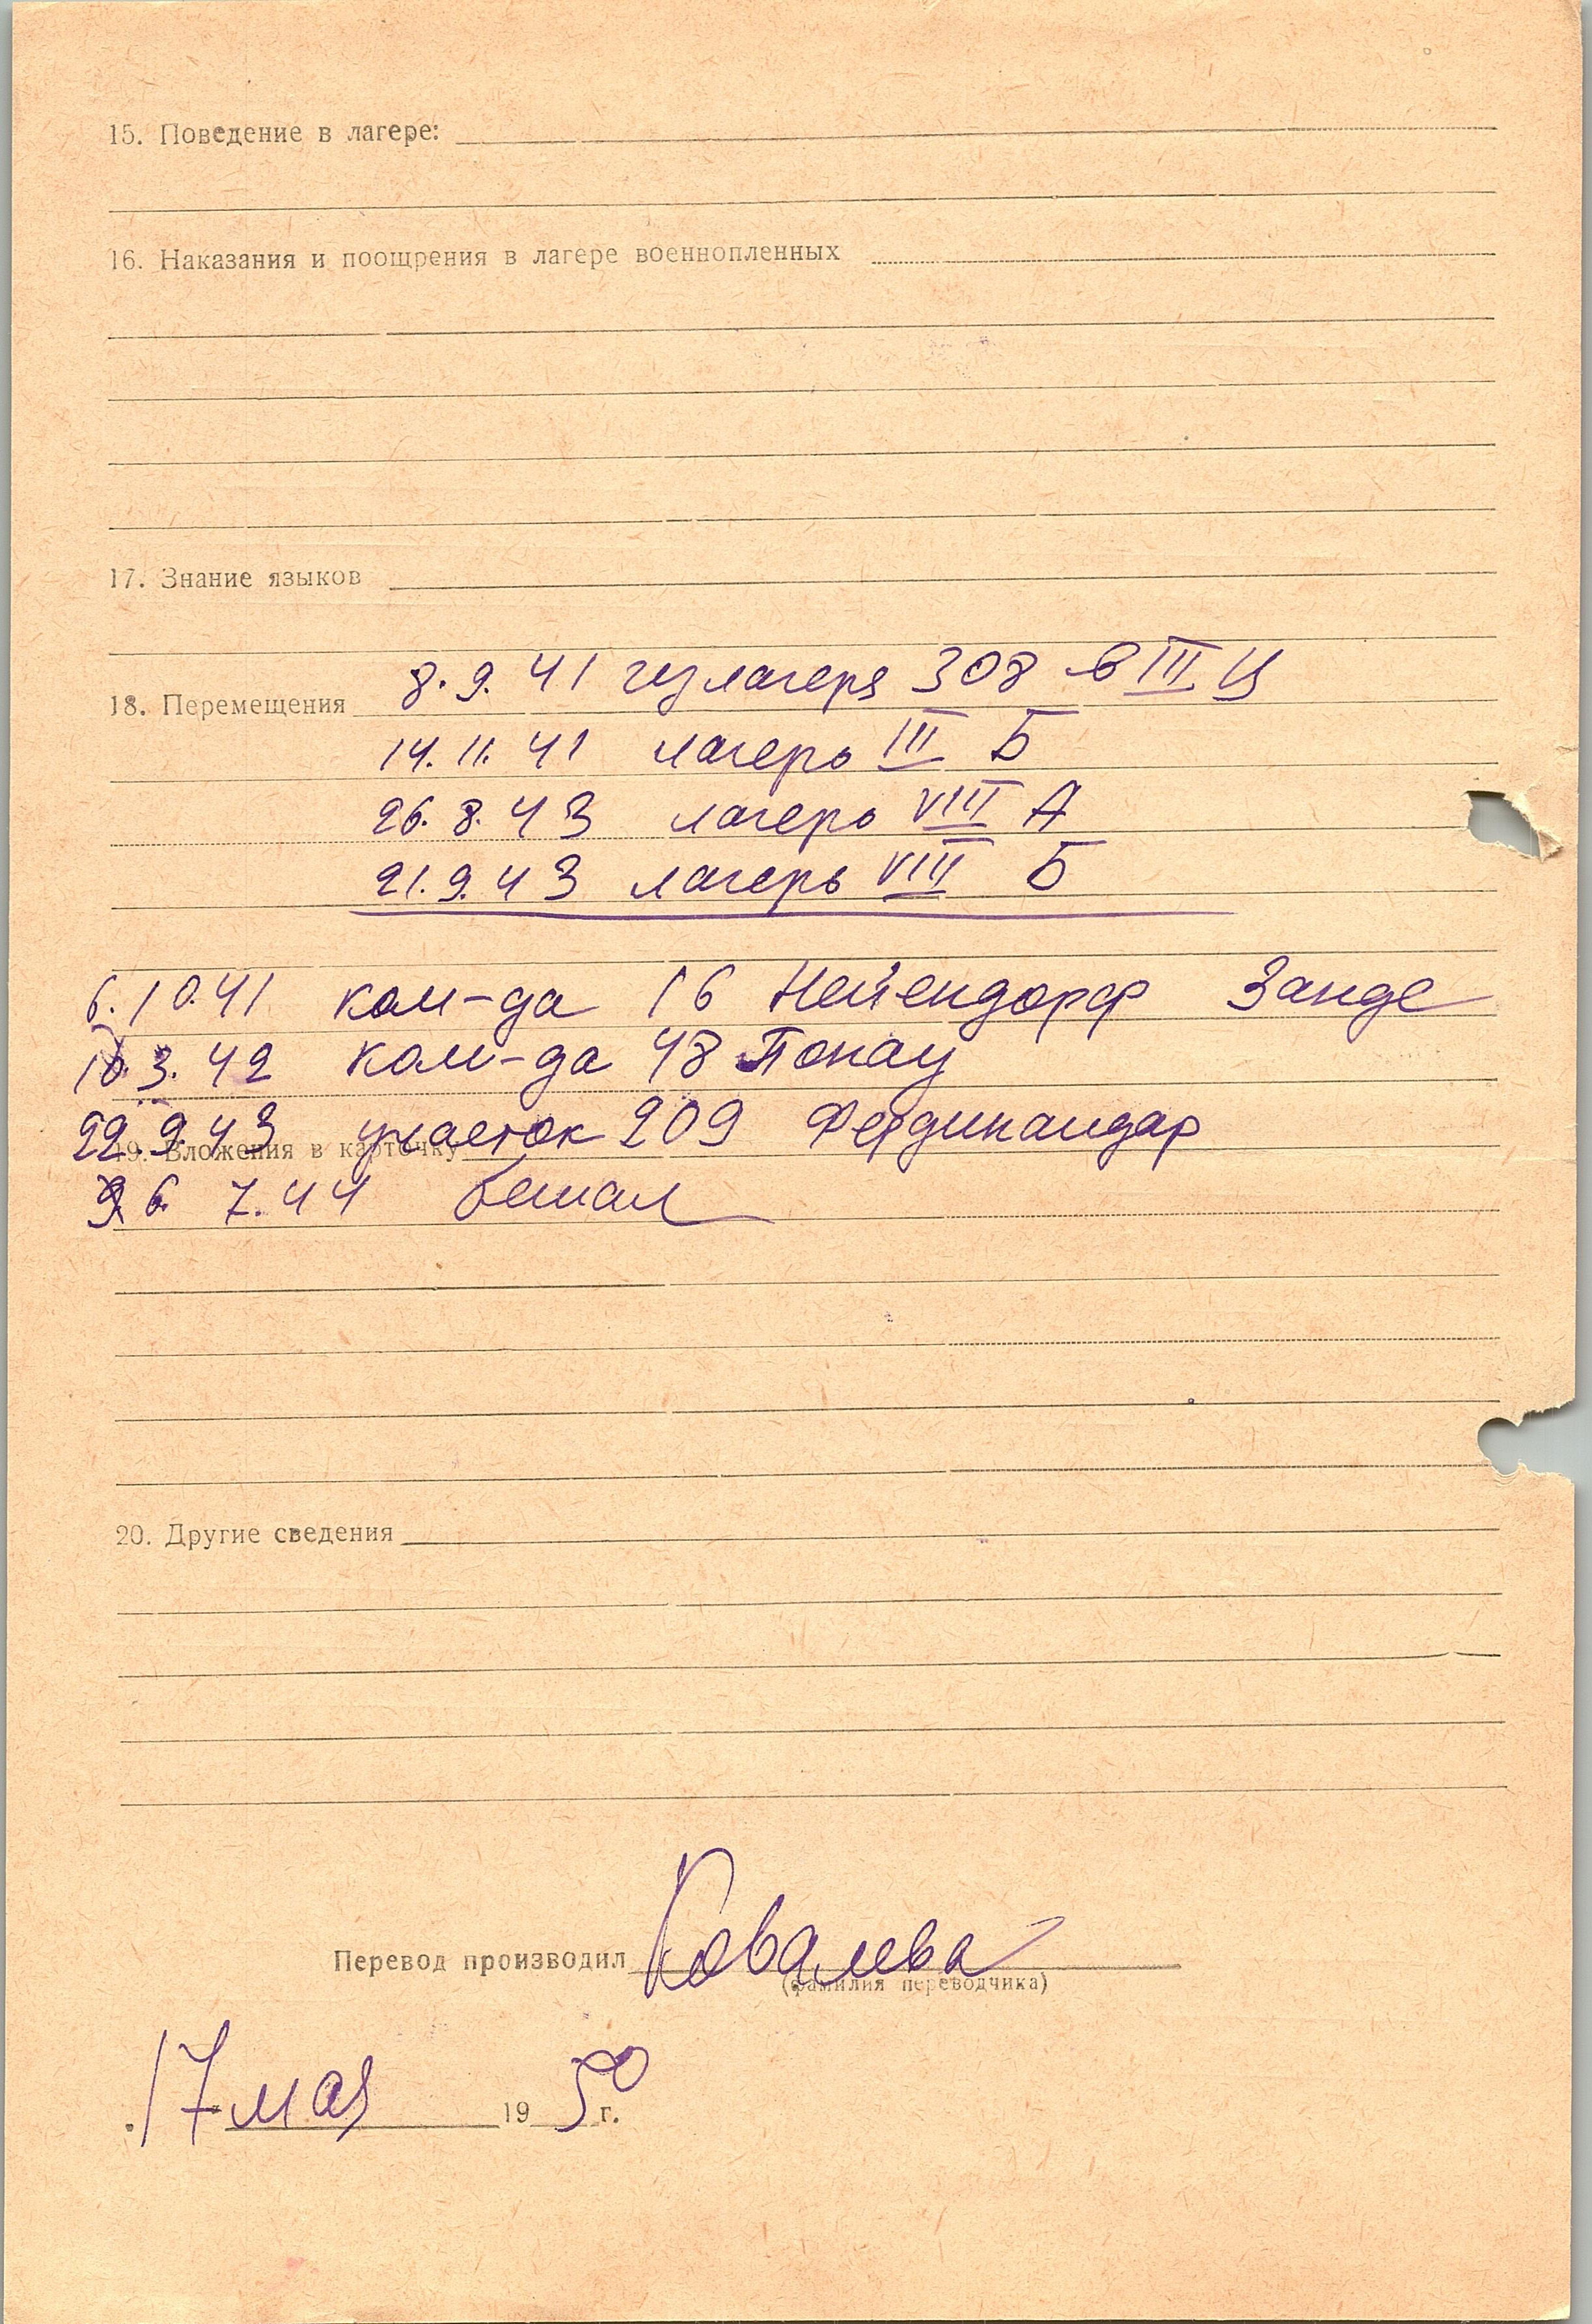 15. Поведение в лагере:
16. Наказания и поощрения в лагере военнопленных
17. Знание языков
8.9.41 из лагеря 308 в III Ц
18. Перемещения
14.11.41 лагерь III Б
26.8.43 лагерь VIII А
21.9.43 лагерь VIII Б
6.10.41 ком-да 16 Нейендорф Занде
10.3.42 ком-да 48
22.9.43 участок 209
19. Вложения в карточку
6. 7.44 бежал
20. Другие сведения
Перевод производил Ковалева
(фамилия переводчика)
17 мая 1950 г.